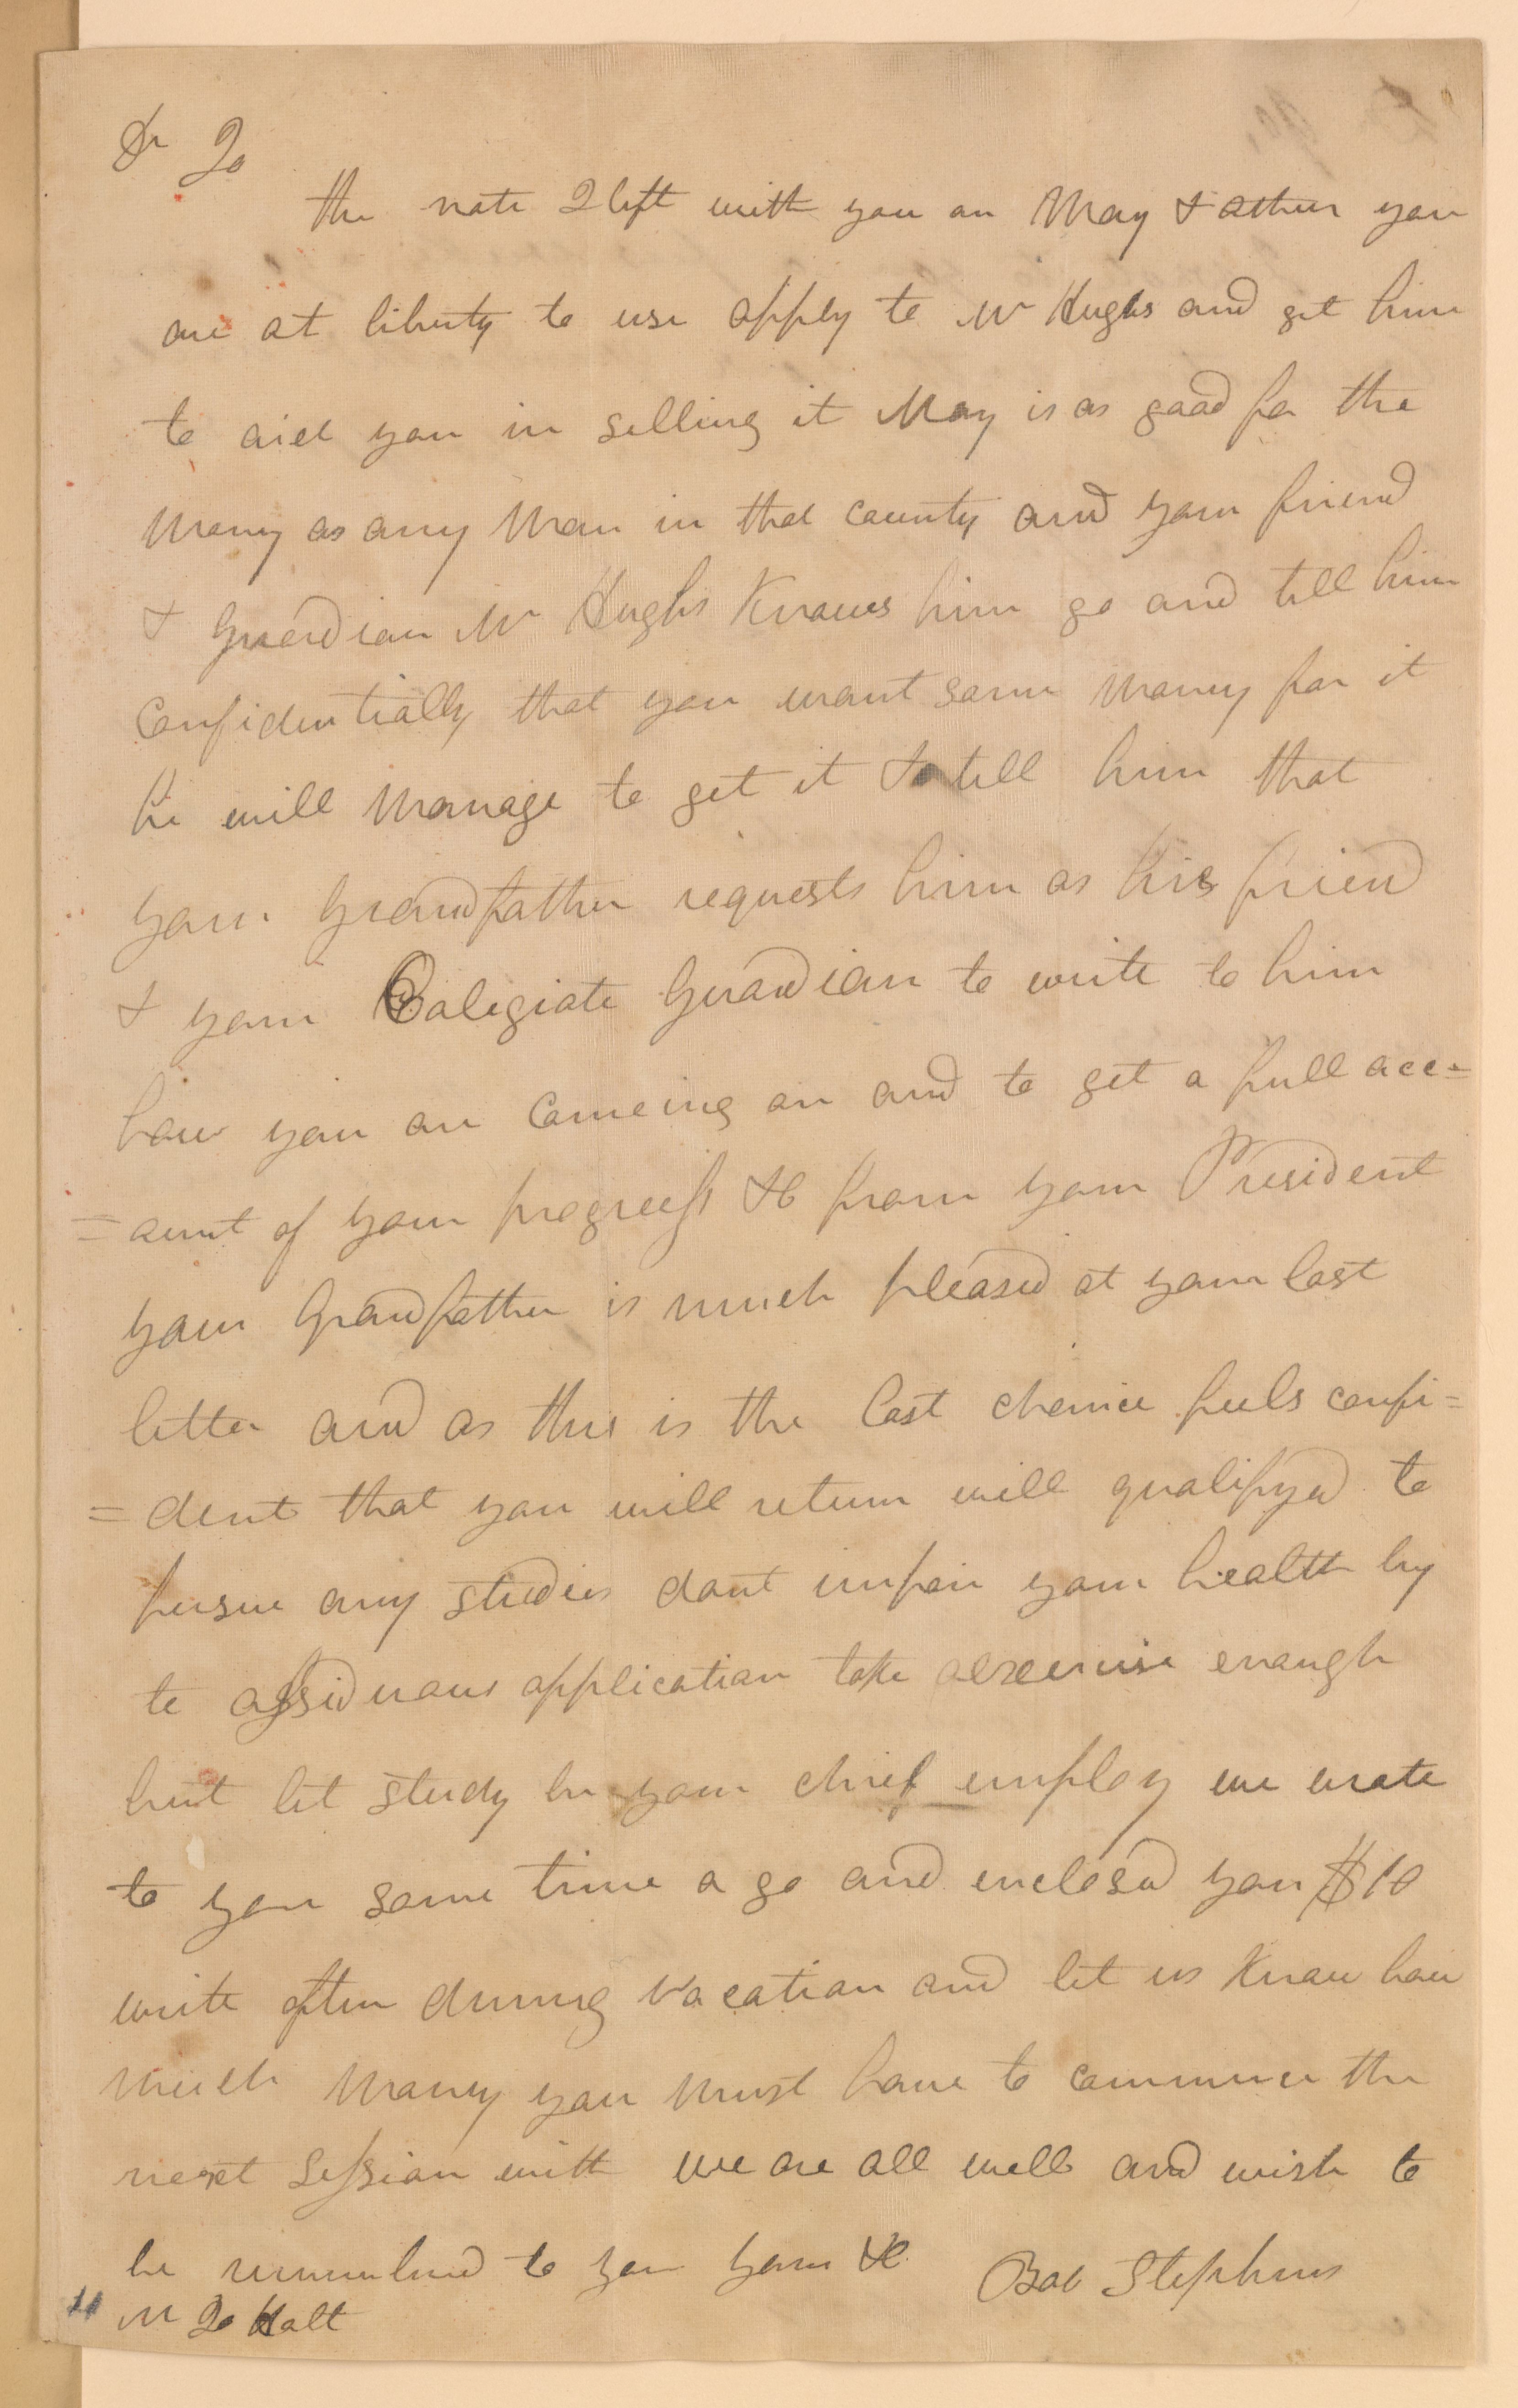 Dr Jo
the note I left with you on May & others you
are at liberty to use apply to Mr Hughs and get him
to aid you in selling it May is as good for the
money as any Man in that county and your friend
& Guardian Mr Hughs Knows him go and tell him
Confidentially that you want some money for it
he will manage to get it & tell him that
your Grandfather requests him as his friend
& your Colegiate Guardian to write to him
how you are Comeing on and to get a full acc=
=ount of your progress &c from your President
your Grandfather is much pleased at your last
letter and as this is the last chance feels confi=
=dent that you will return well qualifyed to
persue any studies dont impair your health by
to assiduous application take exercise enough
but let study be your chief employ we wrote
to you some time a go and enclosed you $10
write often during vacation and let us Know how
much money you must have to commence the
next Session with we are all well and wish to
be remembered to you yours &c Bob Stephens
M Jo Holt